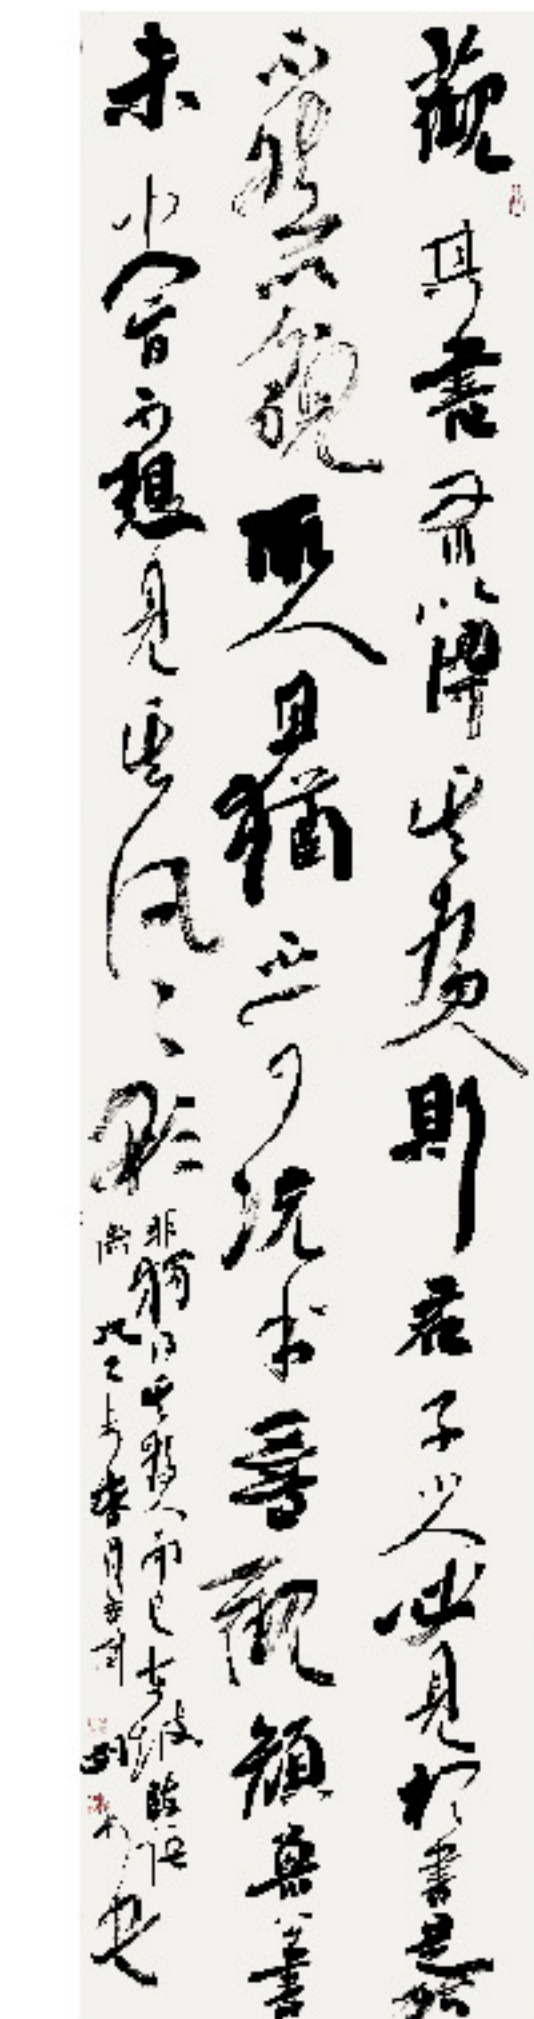 觀其書有以得其為人則君子小人必見於書是殆
不然以貌取人且猶不可況書吾觀顏魯公書
未嘗不想見其風采
非獨得其為人而已東坡跋語